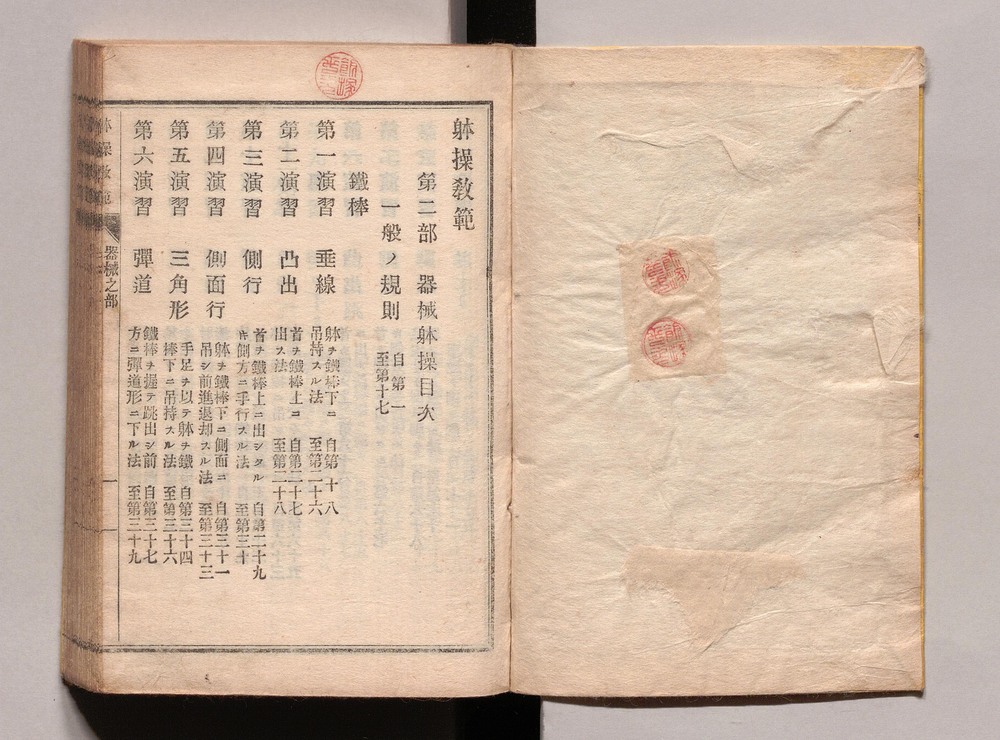 躰操教範
第二部 器械躰操目次
一般ノ規則 自第一
至第十七
鐵棒
第一演習 垂線 躰ヲ鐵棒下ニ 自第十八
吊持スル法 至第二十六
第二演習 凸出 首ヲ鐵棒上ニ 自第二十七
出ス法 至第二十八
第三演習 側行 首ヲ鐵棒上ニ出シタル 自第二十九
キ側方ニ手行スル法 至第三十
第四演習 側面行 躰ヲ鐵棒下ニ側面ニ 自第三十一
吊シ前進退却スル法 至第三十三
第五演習 三角形 手足ヲ以テ躰ヲ鐵 自第三十四
棒下ニ吊持スル法 至第三十六
第六演習 彈道 鐵棒ヲ握テ跳出シ前 自第三十七
方ニ彈道形ニ下ル法 至第三十九
躰操教範 器械之部 一